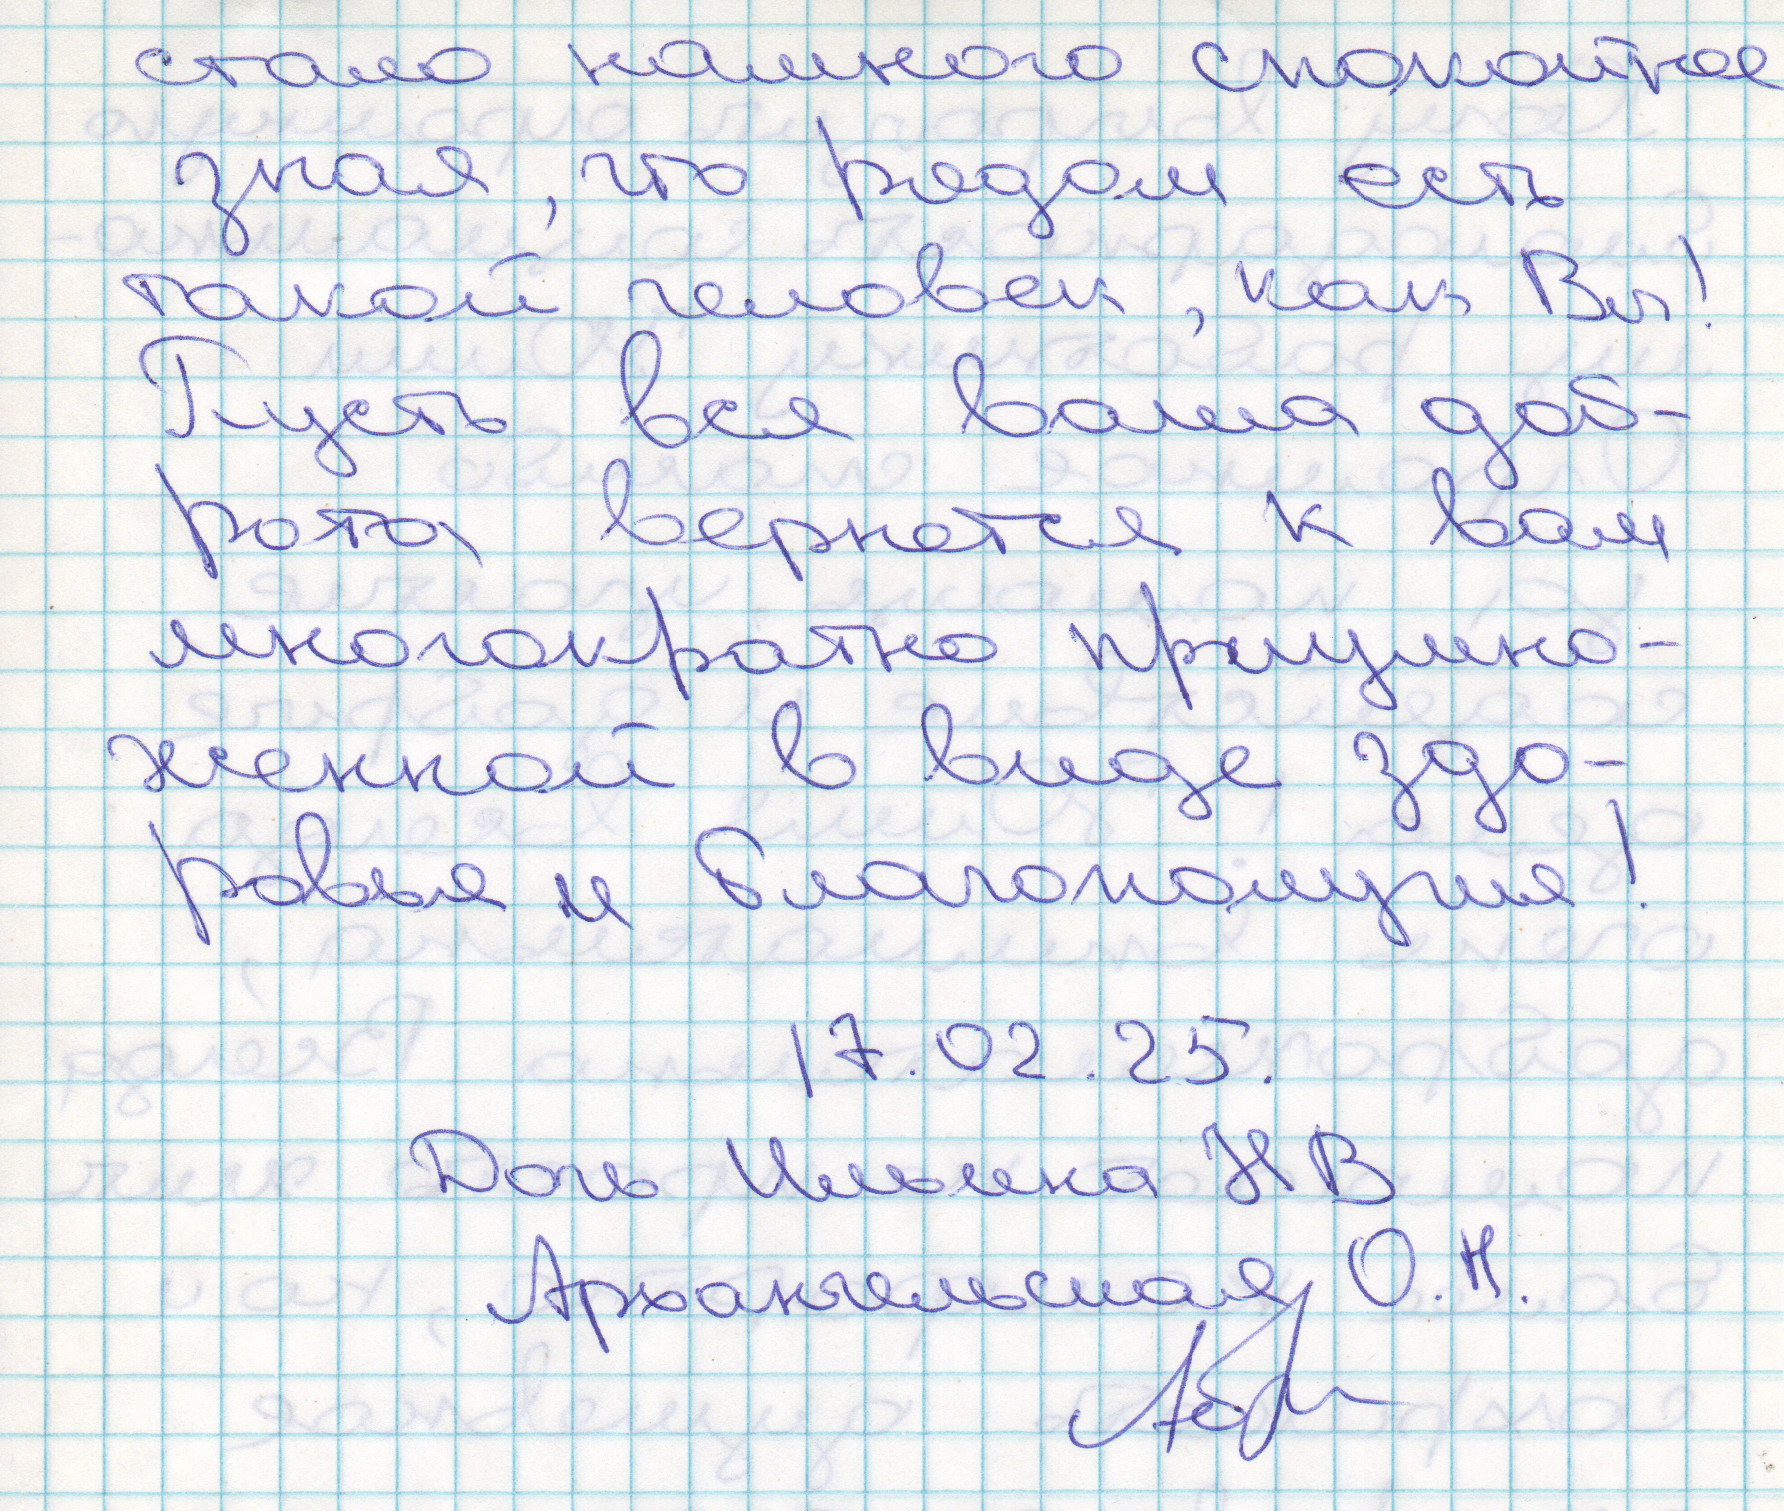 стало намного спокойнее
зная, что рядом есть
такой человек, как Вы!
Пусть вся ваша доб-
рота вернется к вам
многократно приумно-
женной в виде здо-
ровья и благополучия!
17.02.25.
Дочь Ильина Н В
Архангельская О.Н.